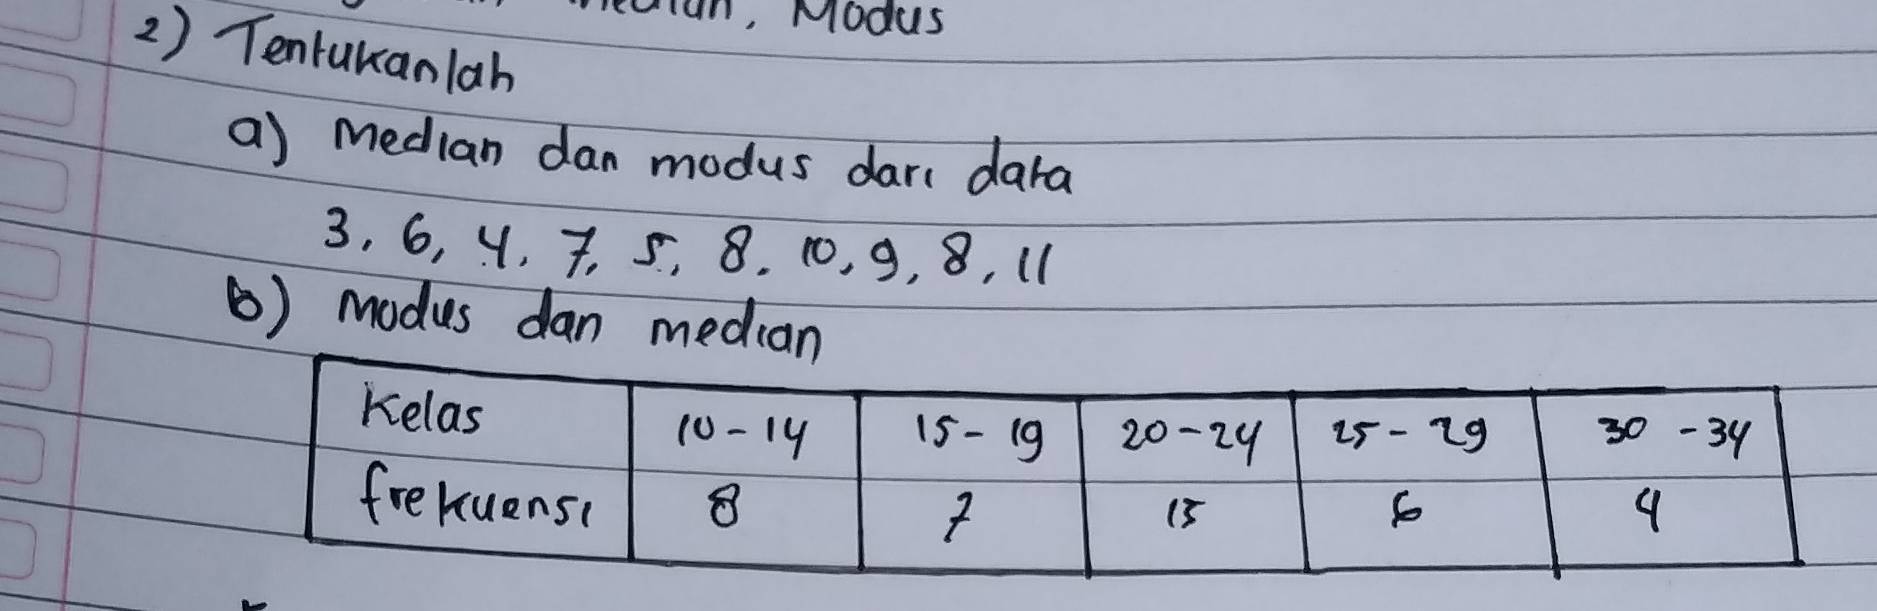 , Modus
2) Tentukanlah
a) Median dan modus dari data
3, 6, 4, 7, 5, 8, 10, 9, 8, 11
b) Modus dan median
Kelas 10-14 15-19 20-24 25-29 30-34
frekuensi 8 7 15 6 4